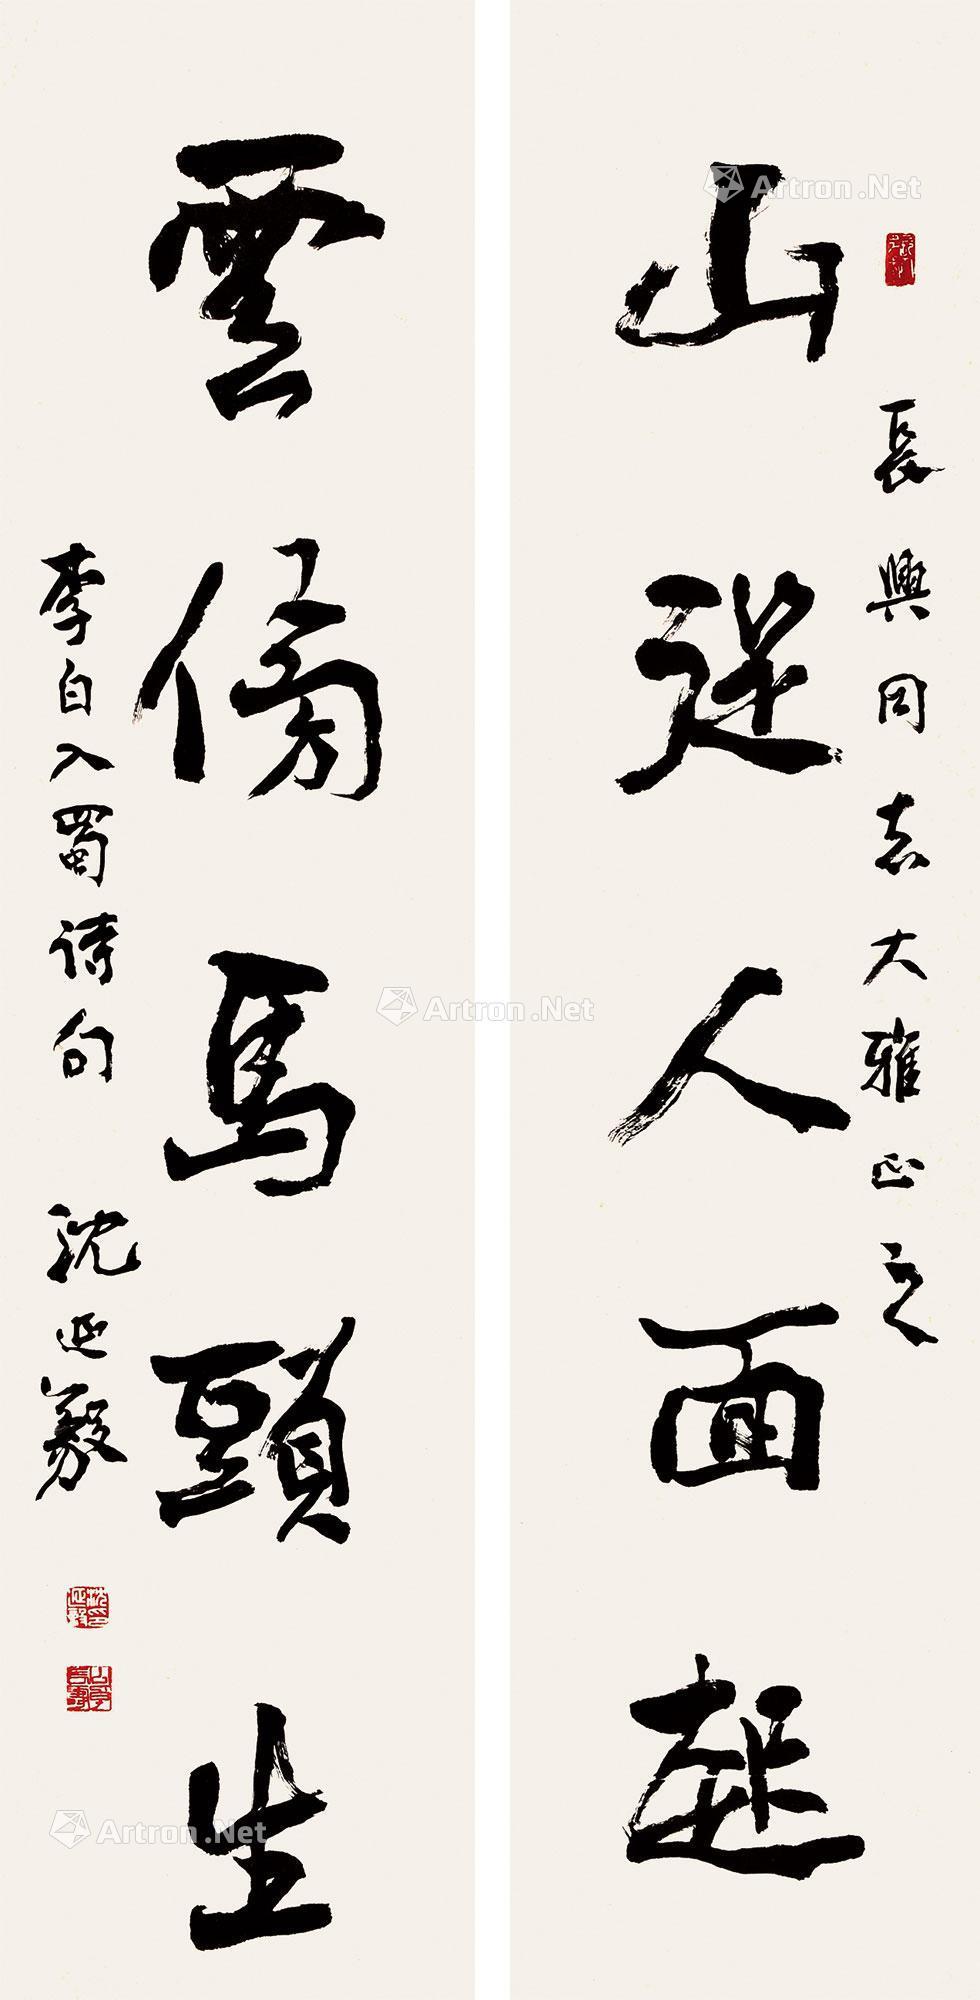 長興同志大雅正之
山從人面起
雲傍馬頭生
李白入蜀詩句 沈延毅
Artron.Net
Artron.Net
Artron.Net